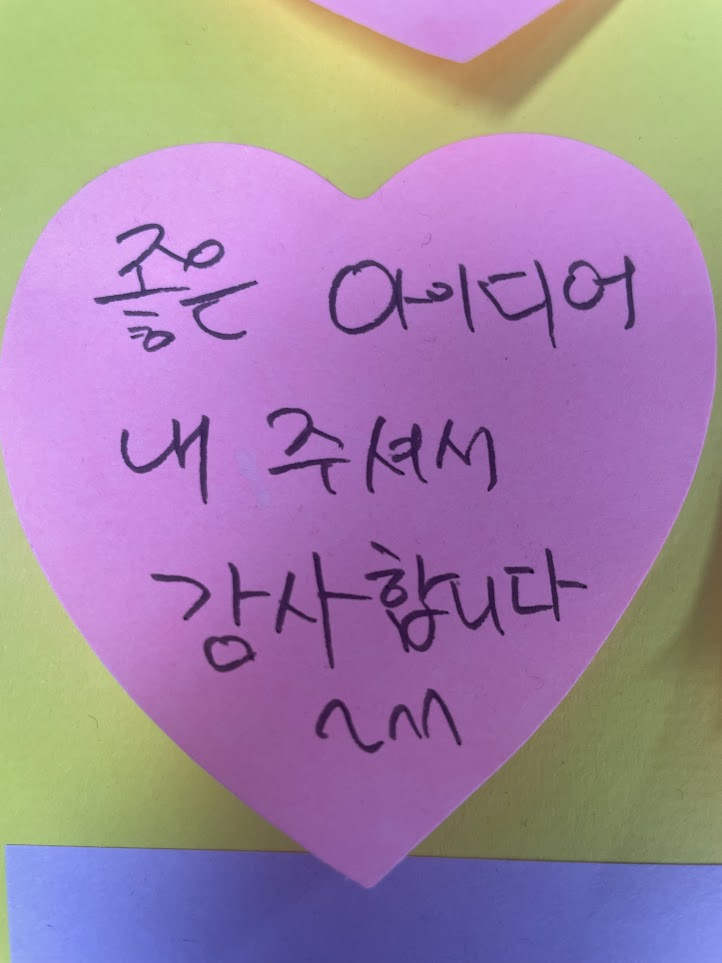 좋은 아이디어
내 주셔서
감사합니다
~^^